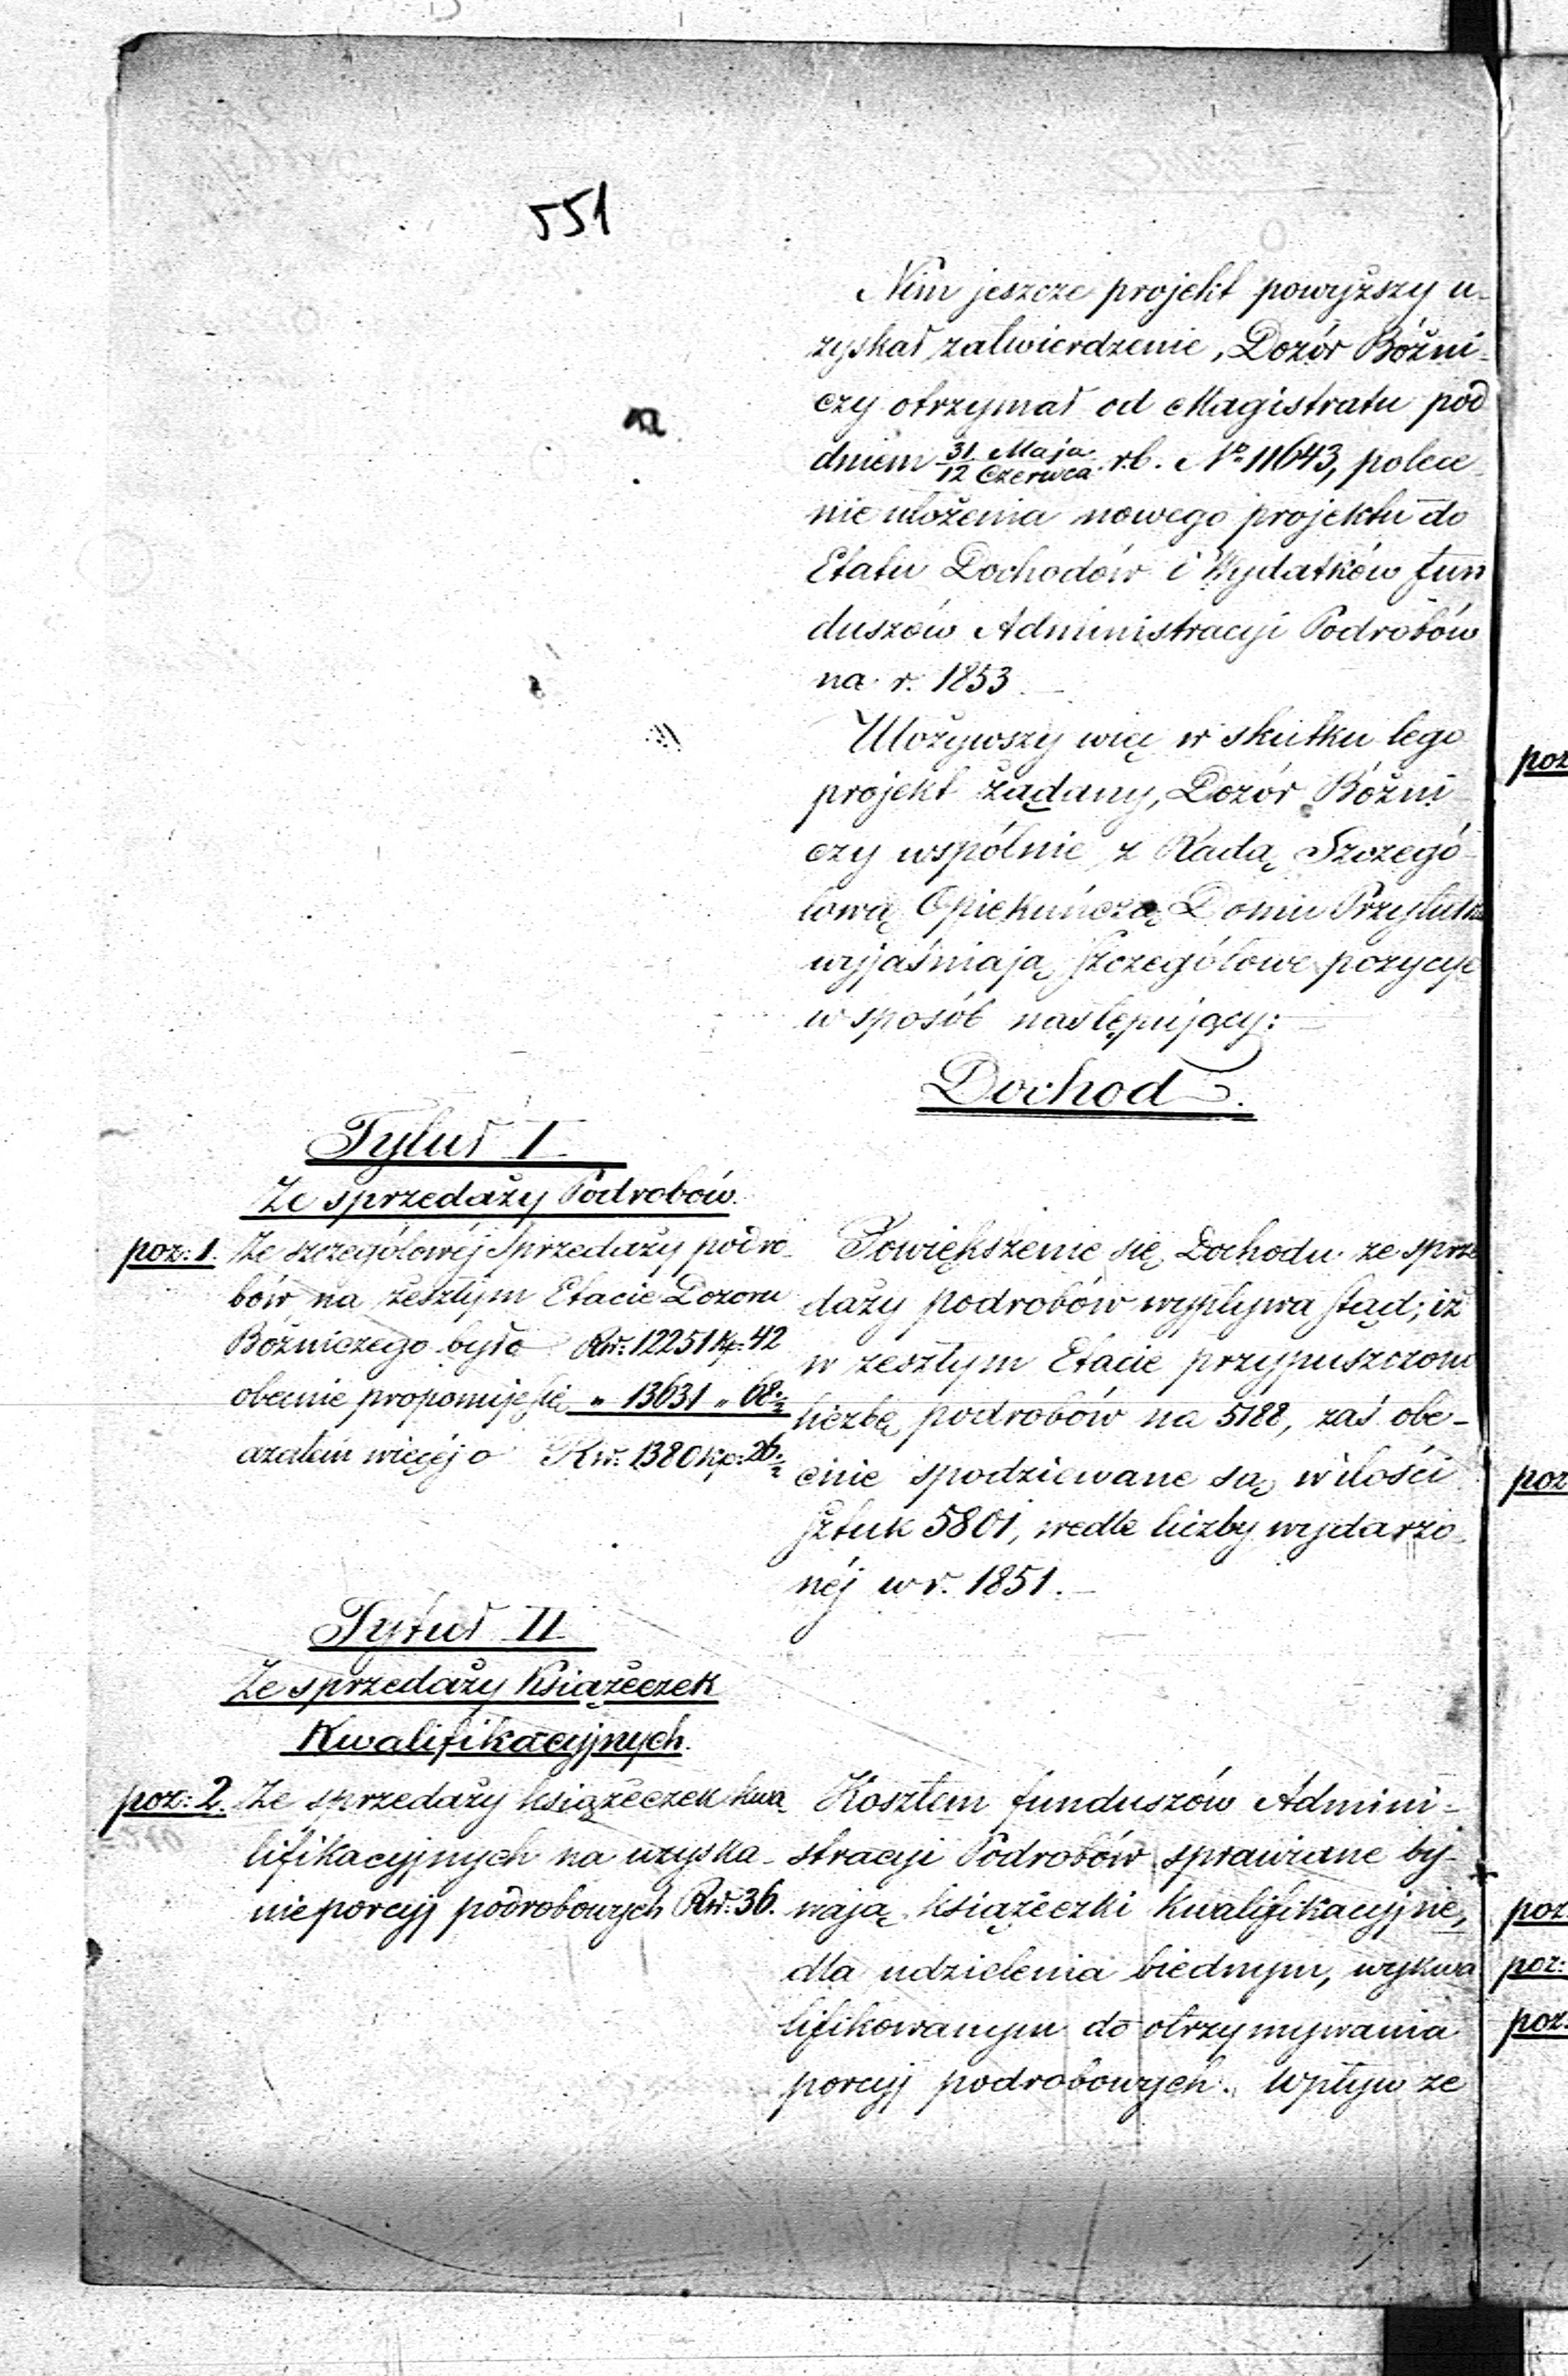 551
Nim jeszcze projekt powyższy u-
zyskał zatwierdzenie, Dozór Bóżni-
czy otrzymał od Magistratu pod
dniem 31 Maja / 12 Czerwca r.b. Nº 11643, polece
nie ułożenia nowego projektu do
Etatu Dochodów i Wydatków fun
duszów Administracyi Podrobów
na r. 1853.
Ułożywszy więc w skutku tego
projekt żądany, Dozór Bóżni
czy wspólnie z Radą Szczegó-
łową Opiekuńczą Domu Przytułku
wyjaśniają szczegółowe pozycye
w sposób następujący:
Dochod.
Tytuł I
Ze sprzedaży Podrobów.
poz: 1. Ze szczegółowéj Sprzedaży podro-
bów na zeszłym Etacie Dozoru
Bóżniczego było Rsr: 12251 kp: 42
obecnie proponuje się „ 13631 „ 68 ½
azatem więcéj o Rsr: 1380 kp: 26 ½
Powiększenie się Dochodu ze sprze
daży podrobów wypływa stąd; iż
w zeszłym Etacie przypuszczono
liczbę podrobów na 5188, zaś obe-
cnie spodziewane są w ilości
sztuk 5801, wedle liczby wydarzo-
néj w r. 1851.
Tytuł II
Ze sprzedaży Książeczek
Kwalifikacyjnych.
poz: 2. Ze sprzedaży książeczek kwa-
lifikacyjnych na uzyska-
nie porcyj podrobowych Rsr: 36.
Kosztem funduszów Admini-
stracyi Podrobów sprawiane by-
wają książeczki kwalifikacyjne,
dla udzielenia biednym, wykwa
lifikowanym do otrzymywania
porcyj podrobowych. Wpływ ze
poz
poz
poz
poz:
poz: